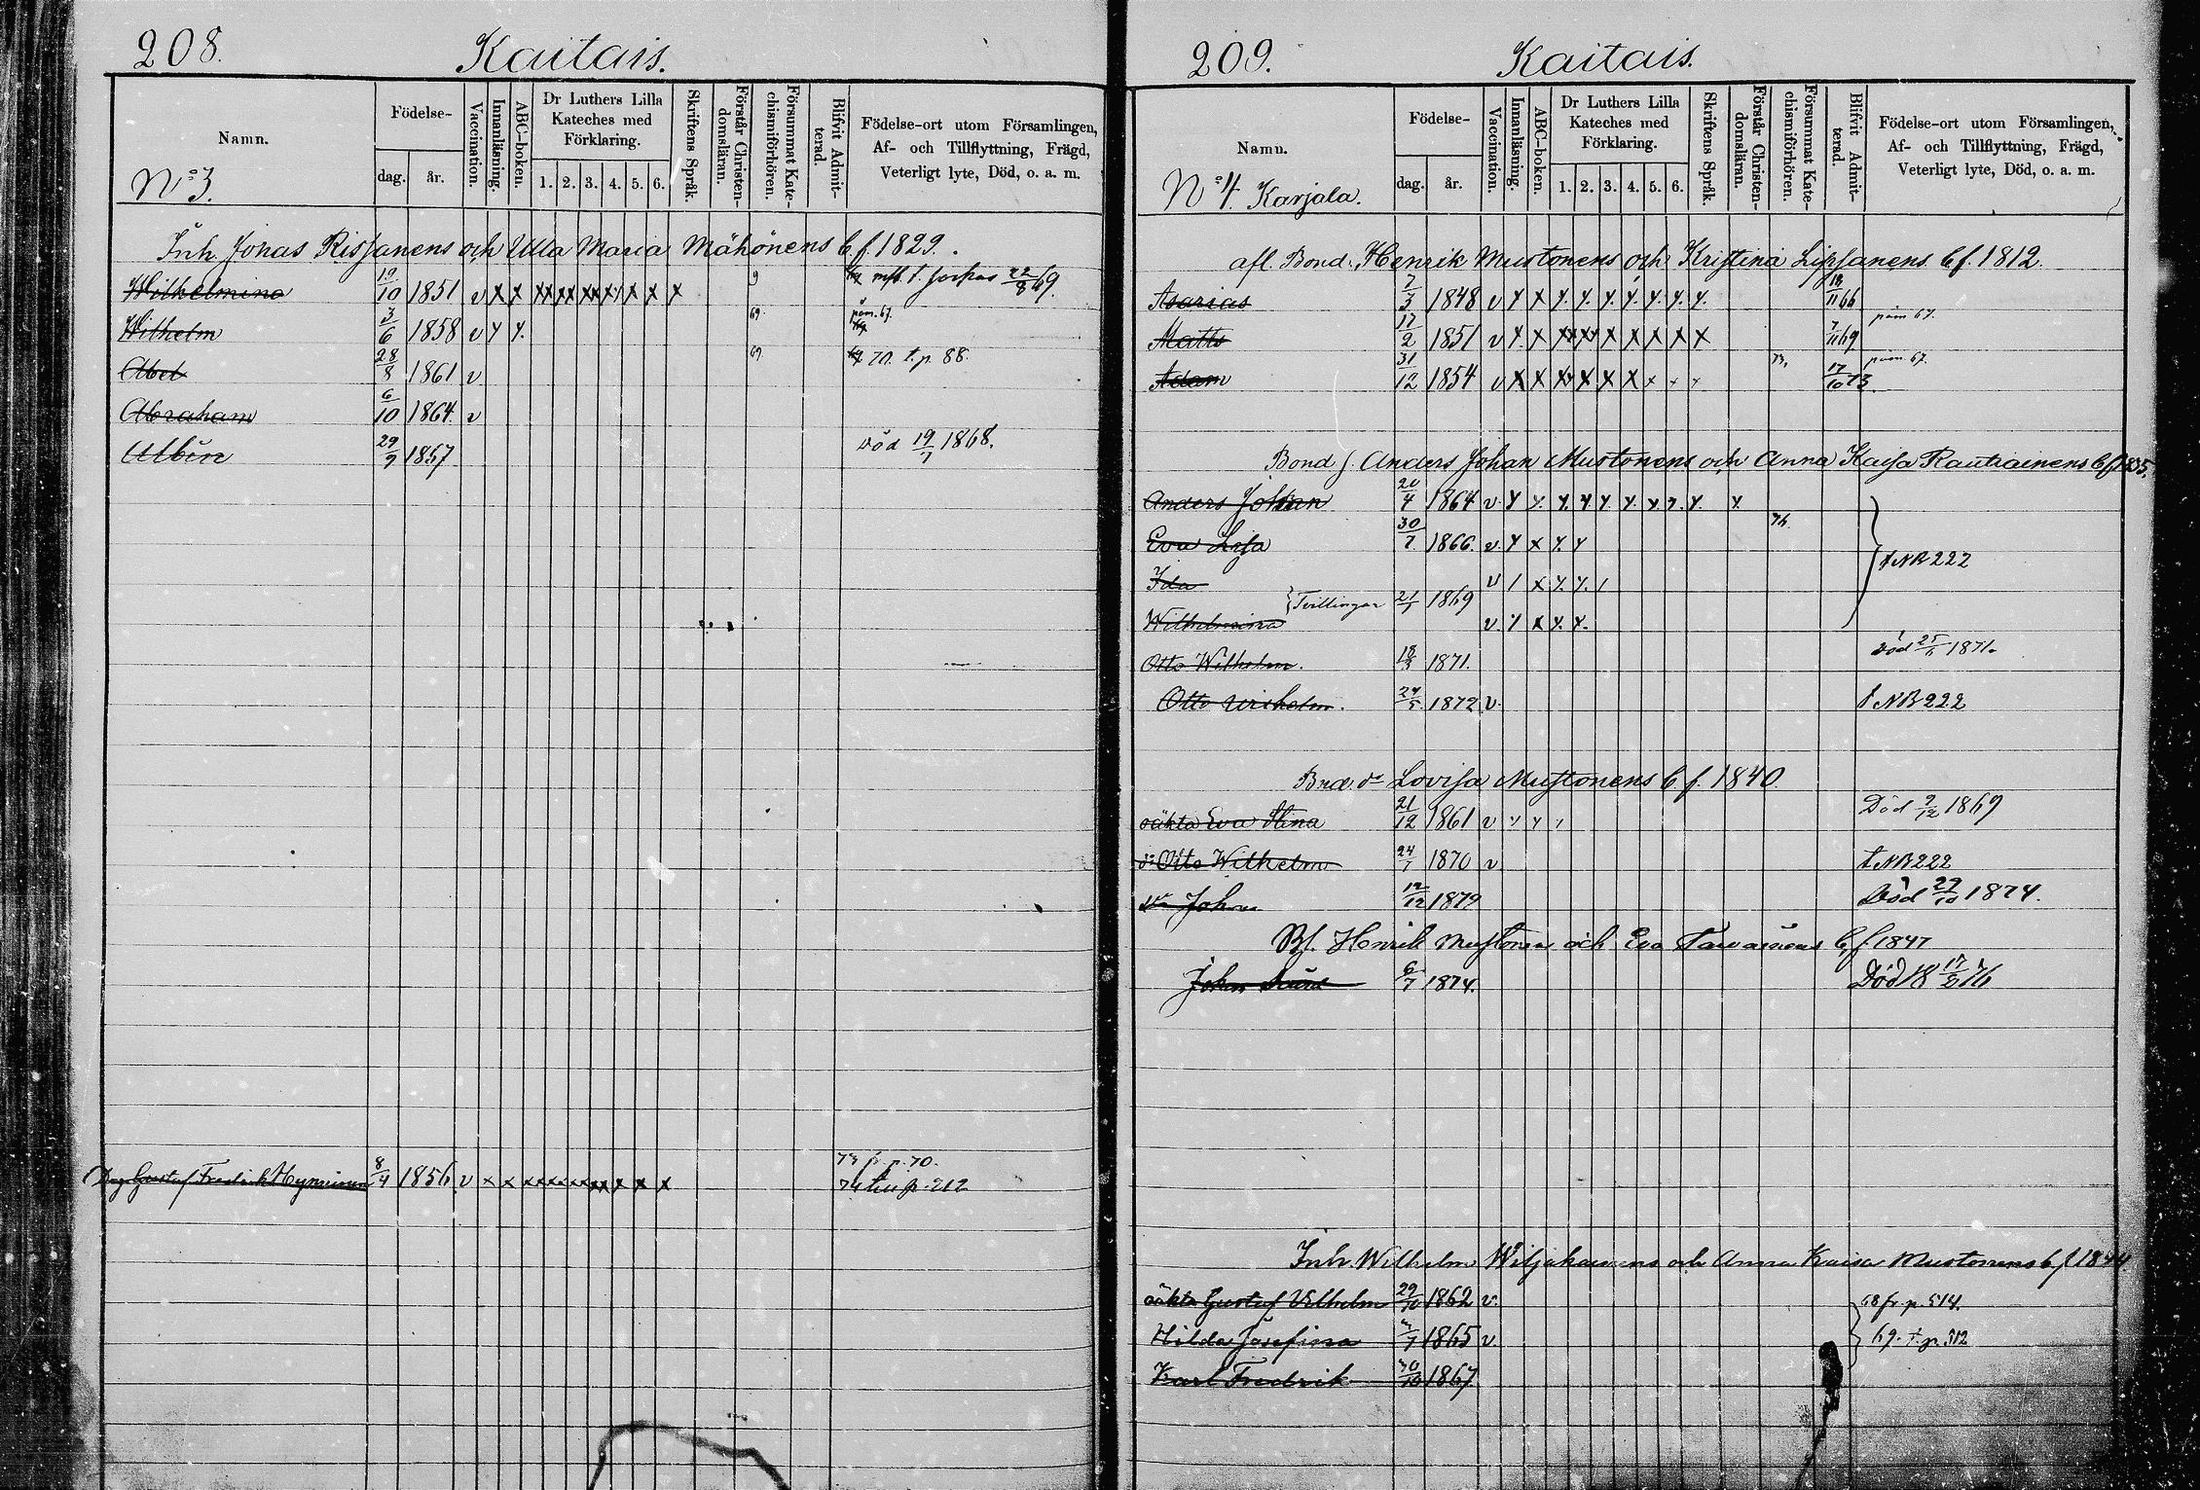 208.
Kaitais.
Namn.
Födelse-
dag. år.
Vaccination.
Innanläsning.
ABC-boken.
Dr Luthers Lilla
Kateches med
Förklaring.
1. 2. 3. 4. 5. 6.
Skriftens Språk.
Förstår Christen-
domsläran.
Försummat Kate-
chismiförhören.
Blifvit Admit-
terad.
Födelse-ort utom Församlingen,
Af- och Tillflyttning, Frägd,
Veterligt lyte, Död, o. a. m.
No 3.
Inh. Jonas Rissanens och Ulla Maria Mähönens b f 1829.
Wilhelmina 19/10 1851 v x x xx xx xx x x x x 22/8 69.
Wilhelm 3/6 1858 v x x. 69. päm. 67.
Abel 28/8 1861 v 69 70. t. p. 88.
Abraham 6/10 1864. v
Albin 29/9 1857 död 19/7 1868.
73 fr p. 70.
Gustaf Fredrik Hyvönen 8/4 1856. v x x x x x x x x x x 74 till p. 212
209.
Kaitais.
Namn.
Födelse-
dag. år.
Vaccination.
Innanläsning.
ABC-boken.
Dr Luthers Lilla
Kateches med
Förklaring.
1. 2. 3. 4. 5. 6.
Skriftens Språk.
Förstår Christen-
domsläran.
Försummat Kate-
chismiförhören.
Blifvit Admit-
terad.
Födelse-ort utom Församlingen,
Af- och Tillflyttning, Frägd,
Veterligt lyte, Död, o. a. m.
No 4. Karjala.
afl. Bond. Henrik Mustonens och Kristina Lipsanens b f. 1812.
Asarias 7/3 1848 v x x x x x x x x x 18/11 66
Matts 17/2 1851 v x x x x x x x x x 7/11 69 päm 67.
Adam 31/12 1854 v x x x x x x x x x 73, 17/10 73. päm 67.
Bond s. Anders Johan Mustonens och Anna Kaisa Rautiainens b f 1835.
Anders Johan 20/4 1864 v x x x x x x x x x x
Eva Lisa 30/7 1866. v x x x x 76.
t NB 222
Ida v x x x x
Tvillingar 21/1 1869
Wilhelmina v x x x x.
Otto Wilhelm. 18/3 1871. död 25/6 1871.
Otto Wilhelm. 24/5 1872 v. t NB 222
Lovisa Mustonens b f. 1840.
oäkta Eva Stina 21/12 1861 v x x x Död 9/12 1869
do Otto Wilhelm 24/7 1870 v t NB 222
do Johan 12/12 1879 Död 29/10 1874.
Henrik Mustonen och Eva b. f 1847
Johan 6/7 1874. Död 18 17/2 76
Inh. Wilhelm Wiljakainens och Anna Kaisa Mustonens b f 1844
oäkta Gustaf Vilhelm 29/10 1862 v. 68 fr p. 514.
Hilda Josefina 1865 v. 69. t. p. 312
Karl Fredrik 30/10 1867